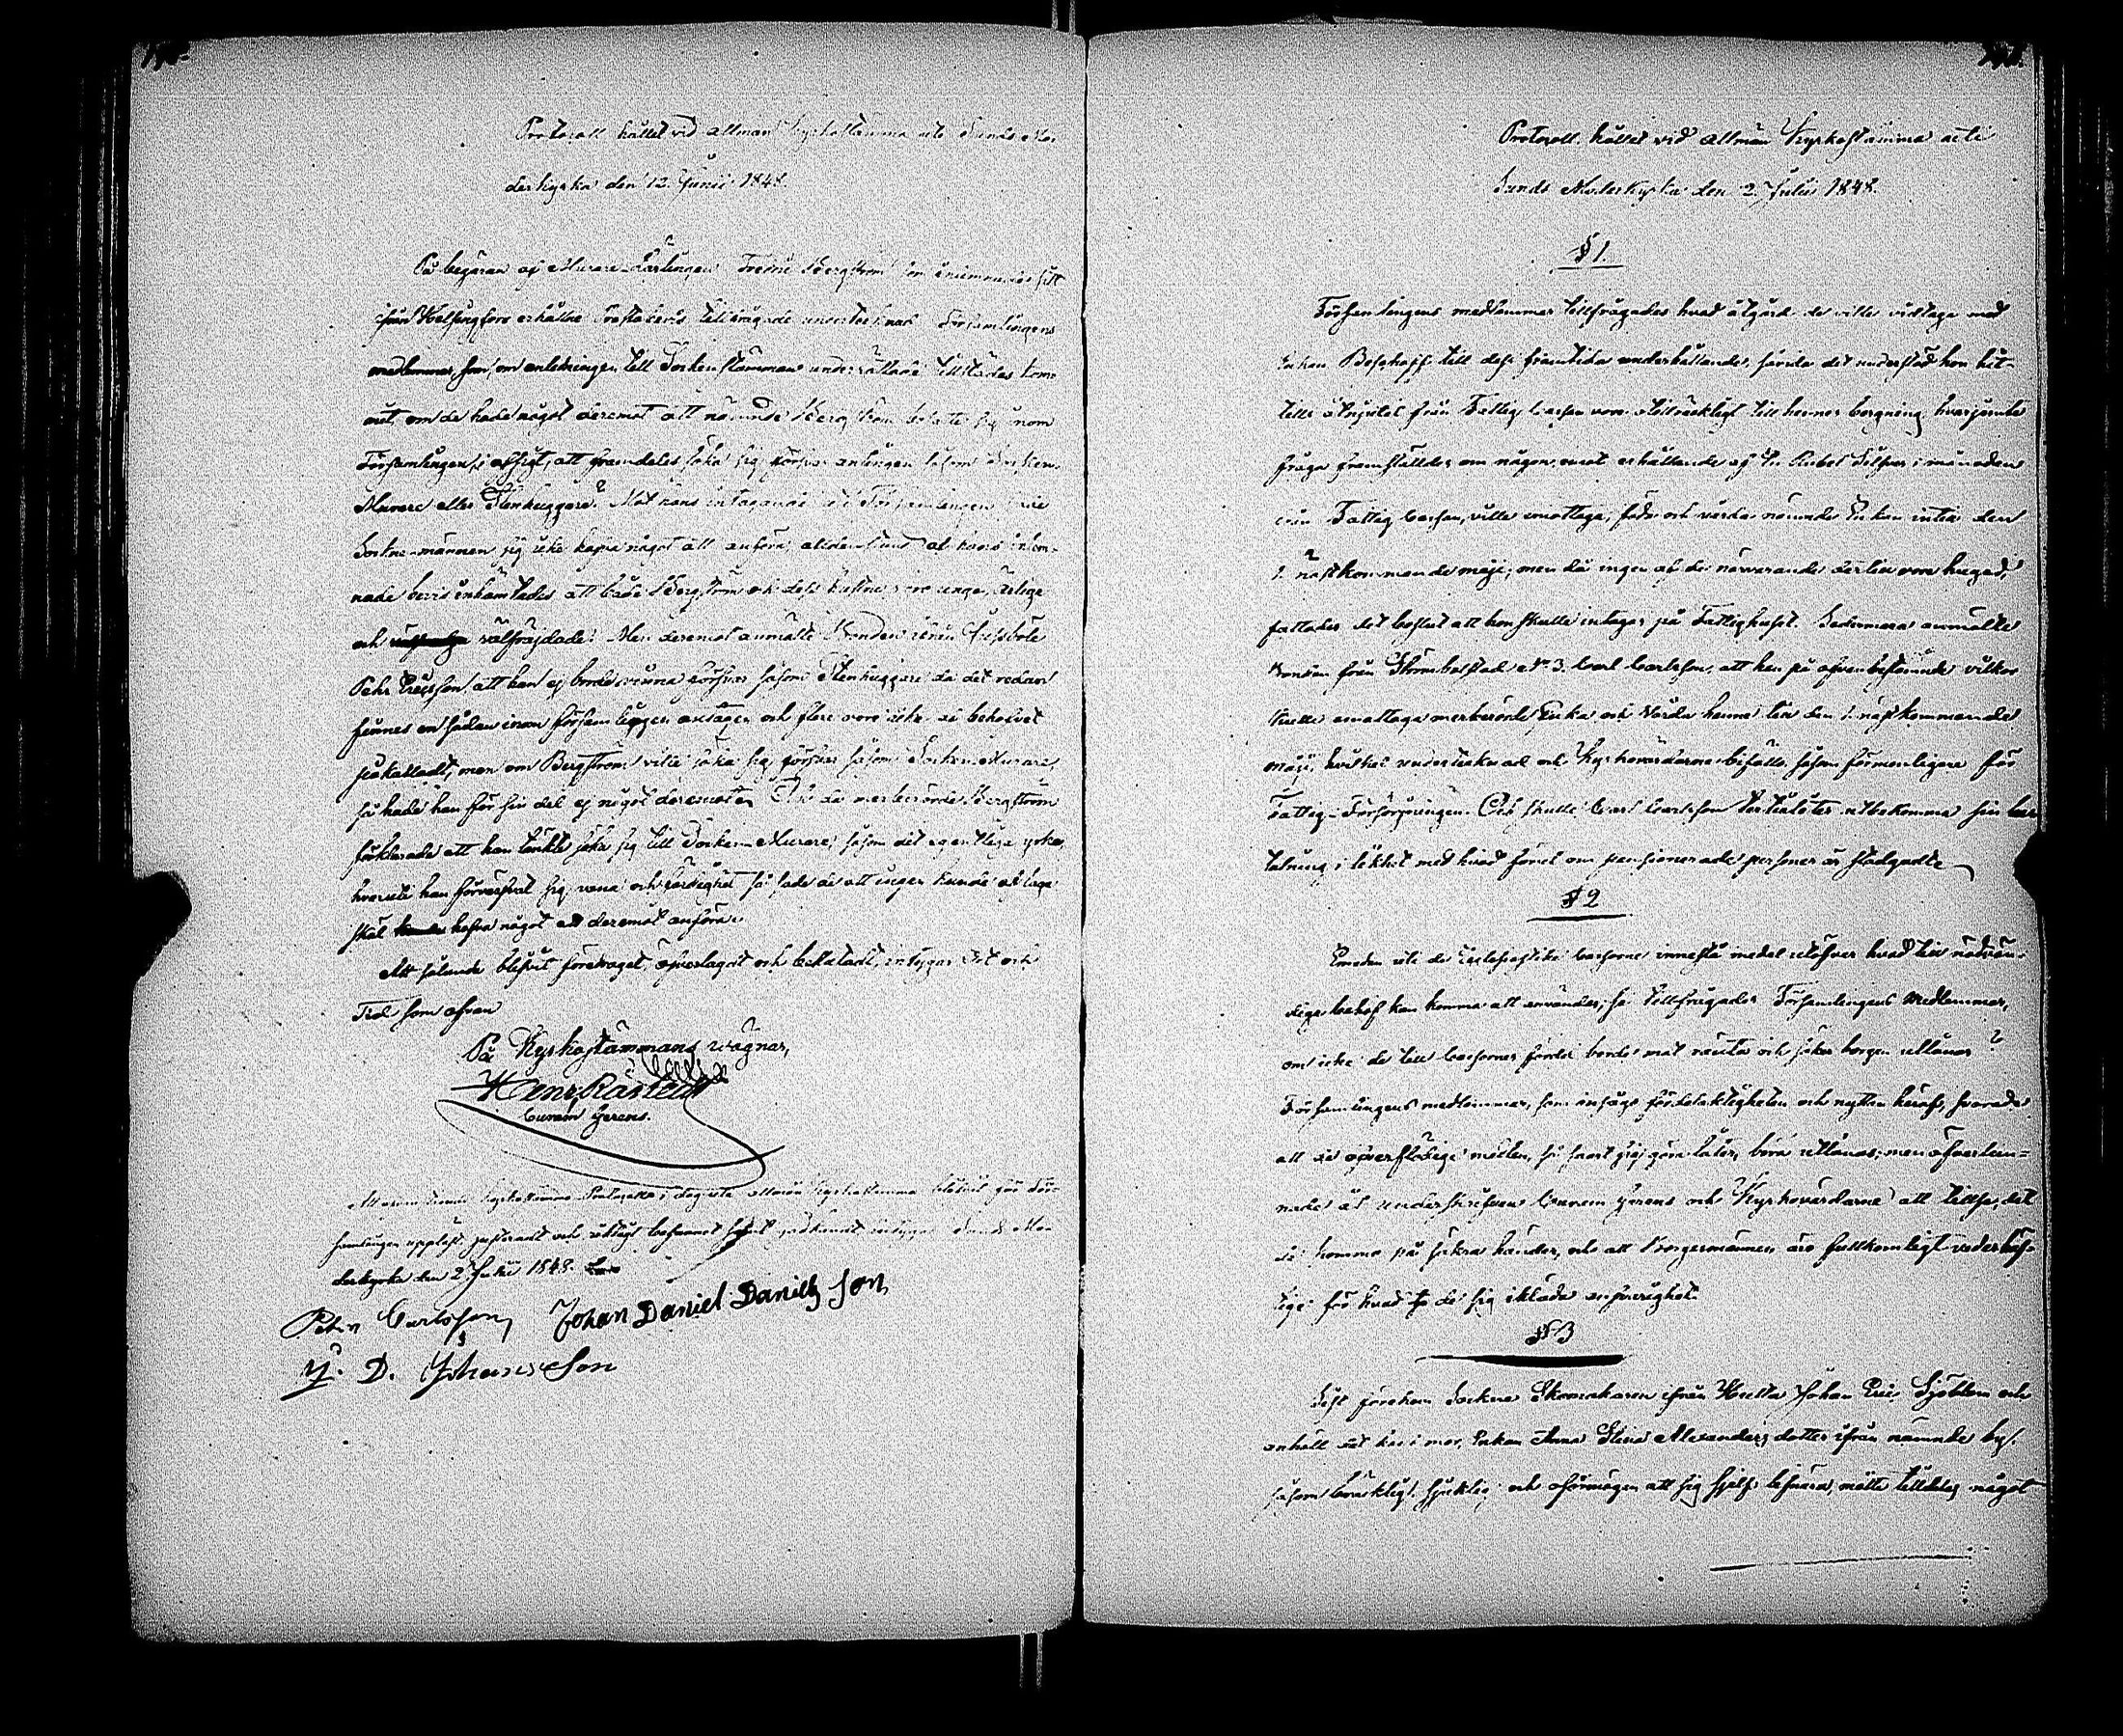 Protocoll hållet vid allmän Kyrkostämma uti Sunds Mo-
derkyrka den 12. Junii 1848.
På begäran af Murare-Lärlingen Fredric Bergström
ifrån Helsingfors undertecknad Församlingens
medlemmar, som, om anledningen till Sockenstämman underrättade tillstädes kom-
mit, om de hade något deremot att nämnde Bergström bosatte sig inom
Församlingen i afsigt, att framdeles söka sig försvar antingen såsom Socken-
Murare eller Stenhuggare? Mot hans intagande uti Församlingen
Sockne-männen sig icke hafva något att anföra, alldenstund af hans inlem-
nade bevis inhämtades att både Bergström och dess hustru voro unga, ärlige
och välfrejdade. Men deremot anmälte Bonden ifrån Gussböle
Pehr Ericsson, att han ej borde vinna försvar såsom Stenhuggare då det redan
finnes en sådan inom församlingen antagen och flere vore icke af behofvet
påkallade, men om Bergström ville söka sig försvar såsom Socken-Murare,
så hade han för sin del ej något deremot. Och då merberörde Bergström
förklarade att han tänkte söka sig till Socken-Murare, såsom det egentliga yrke,
hvaruti han förvärfvat sig vana och färdighet så sade de att ingen kunde af laga
skäl hafva något att deremot anföra.
Att sålunde blifvit föredraget, öfverlagdt och beslutadt, intygar Ort och
Tid som ofvan
På Kyrkostämmans vägnar,
Henr. Råstedt
Curam Gerens.
Att ofvanstående Kyrkostämmo-Protocoll i dag uti allmän Kyrkostämma blifvit för För-
samlingen uppläst, justeradt och riktigt befunnet samt godkändt, intygas Sunds Mo-
derkyrka den 2 Julii 1848.
Petter Carlsson Johan Daniel Daniels Son
J. D. Johans Son
Protocoll, hållet vid allmän Kyrkostämma uti
Sunds Moderkyrka den 2 Julii 1848.
§ 1.
Församlingens medlemmar tillfrågades hvad åtgärd de ville vidtaga med
Enkan Beschoff till dess framtida underhållande, då det understöd hon hit-
tills åtnjutit från Fattig Cassan vore otillräckligt till hennes bergning hvarjemte
fråga framställdes om någon, mot erhållande af En Rubel Silfver i månaden
från Fattig Cassan, ville emottaga, föda och vårda nämnde Enkan intill den
1. nästkommande Maji; men då ingen af de närvarande dertill vore hugad,
fattades det beslut att hon skulle intagas på Fattighuset. Sedermera anmälte
Bonden från Strömbolstad N:o 3. Carl Carlsson, att han på ofvanbestämde vilkor
skulle emottaga merberörde Enka och vårda henne till den 1. nästkommande
Maji, hvilket undertecknad och Kyrkovärdarne biföllo, såsom förmonligare för
Fattig-Försörjningen. Och skulle Carl Carlsson tertialiter utbekomma sin be-
talning i likhet med hvad förut om pensionerade personer är stadgadt.
§ 2
Emedan uti de Ecclesiastike Cassorne innestå medel utöfver hvad till nödvän-
diga behof kan komma att användas, så tillfrågades Församlingens Medlemmar,
om icke de till Cassornes fördel borde mot ränta och säker borgen utlånas?
Församlingens medlemmar, som insågo fördelaktigheten och nyttan häraf, svarade
att de öfverflödige medlen, så snart sig göra låter, böra utlånas; men öfverlem-
nade åt underskrifven Curam gerens och Kyrkovärdarne att tillse, det
de komma på säkra händer, och att Borgesmännen äro fullkomligt vederhäf-
tige för hvad de sig iklädа ansvarighet.
§ 3
Sist förekom Sockne Skomakaren ifrån Hulta Johan Eric Sjöblom och
anhöll det hans mor, Enkan Anna Stina Alexandersdotter ifrån nämnde by,
såsom bräcklig, sjuklig och oförmögen att sig sjelf lifnära, måtte tilldelas något